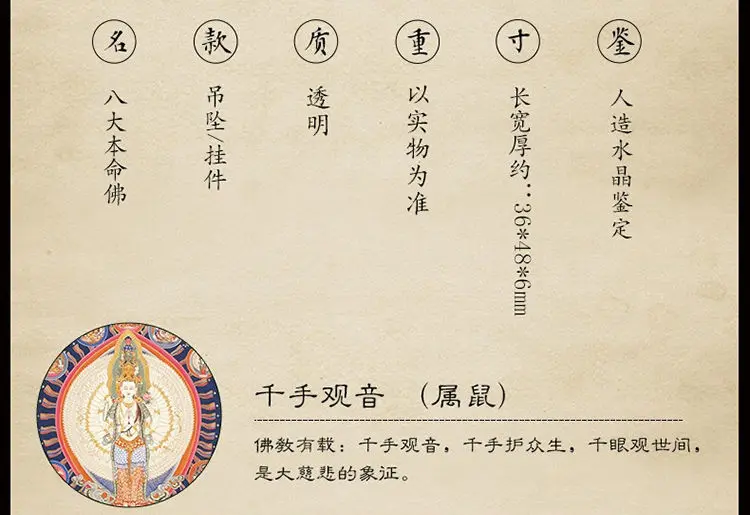 名
八大本命佛
款
吊坠/挂件
质
透明
重
以实物为准
寸
长宽厚约：36*48*6mm
鉴
人造水晶鉴定
千手观音 （属鼠）
佛教有载：千手观音，千手护众生，千眼观世间，
是大慈悲的象证。